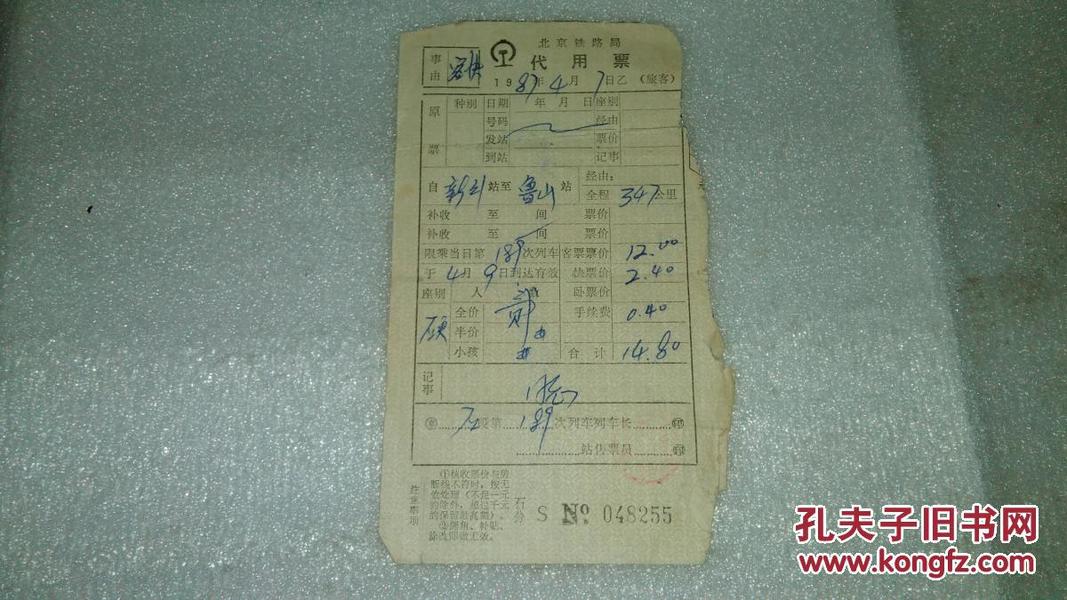 北京铁路局
事由 客快
代用票
1987年4月7日乙 (旅客)
原票
种别 日期 年 月 日 座别
号码 经由
发站 票价
到站 记事
自 站至 鲁山 站 经由:
全程 347 公里
补收 至 间 票价
补收 至 间 票价
限乘当日第 189 次列车 客票票价 12.00
于 4月 9日到达有效 快票价 2.40
座别 人 卧票价
硬 全价 贰 手续费 0.40
半价
小孩 合计 14.80
记事
石 段第 189 次列车列车长 印
站售票员 印
注意事项
①核收票价与剪
断线不符时,按无
效处理(不足一元
的除外,超过千元
的保留最高额)。
②撕角、补贴、
涂改即做无效。
石分 S No 048255
孔夫子旧书网
www.kongfz.com